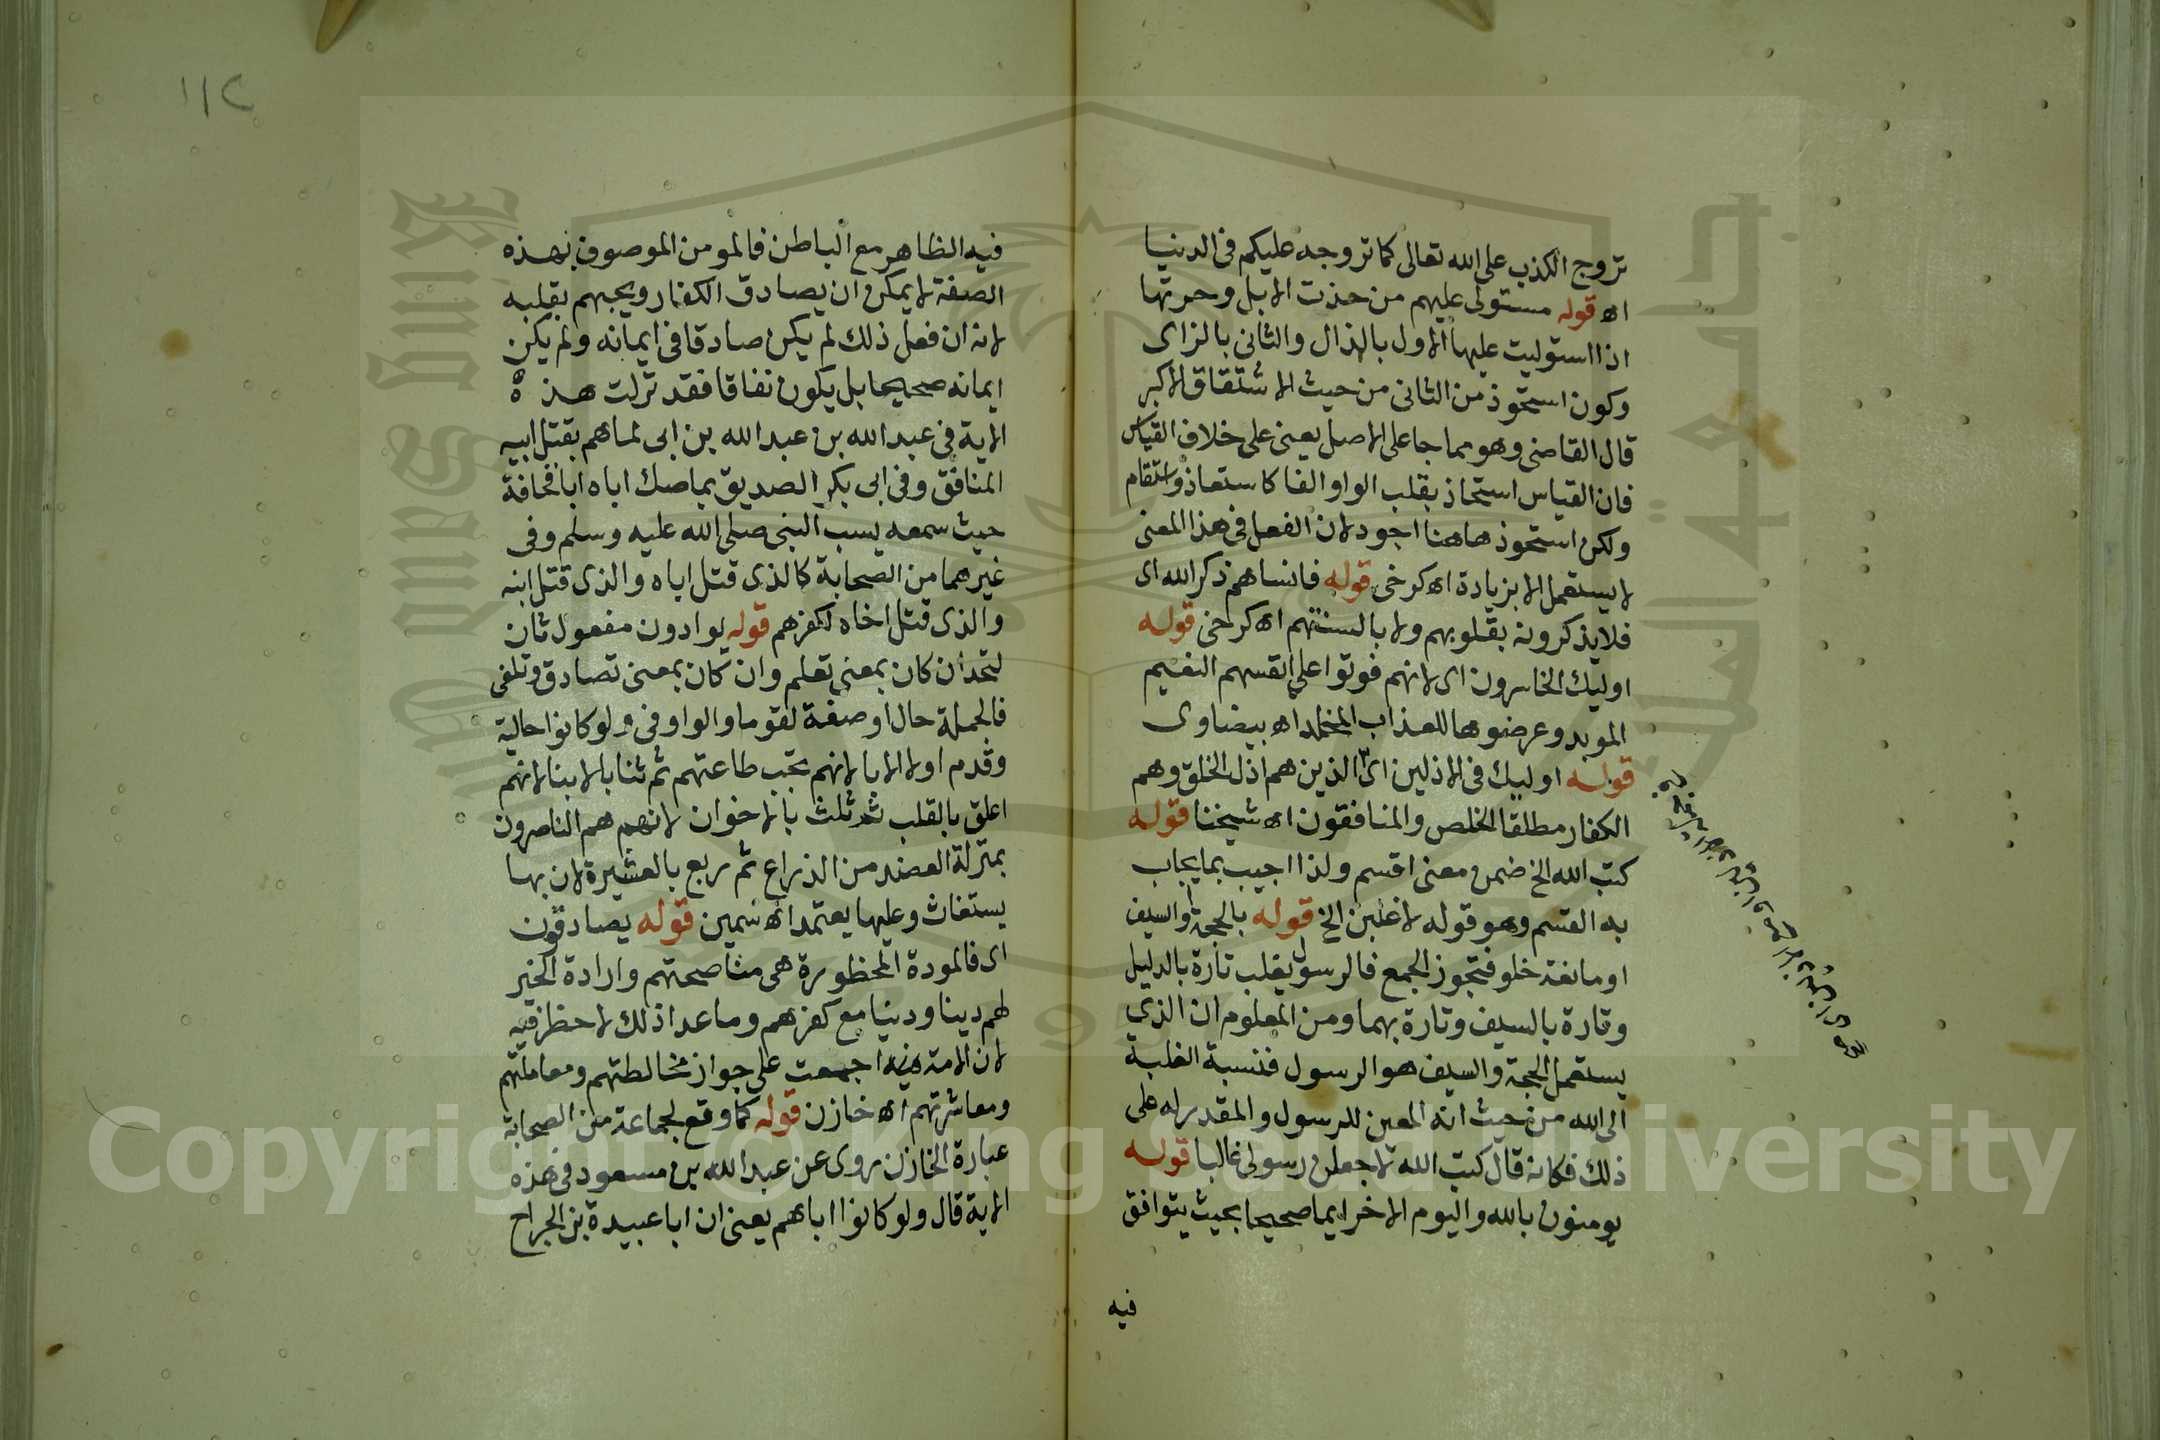 تروج الكذب على الله تعالى كما تروجه عليكم فى الدنيا
اه قوله مستولى عليهم من حذت الابل وحزتها
اذا استوليت عليها الاول بالذال والثانى بالزاى
وكون استحوذ من الثانى من حيث الاشتقاق الاكبر
قال القاضى وهو مما جا على الاصل يعنى على خلاف القياس
فان القياس استحاذ بقلب الواو الفا كاستعاذ واستقام
ولكن استحوذ هاهنا اجود لان الفعل فى هذا المعنى
لا يستعمل الا بزيادة اه كرخى قوله فانساهم ذكر الله اى
فلا يذكرونه بقلوبهم ولا بالسنتهم اه كرخى قوله
اوليك الخاسرون اى لانهم فوتوا على انفسهم النعيم
الموبد وعرضوها للعذاب المخلد اه بيضاوى
قوله اوليك فى الاذلين اى الذين هم اذل الخلق وهم
الكفار مطلقا الخلص والمنافقون اه شيخنا قوله
كتب الله الخ ضمن معنى اقسم ولذا اجيب بما يجاب
به القسم وهو قوله لاغلبن الخ قوله بالحجة او السيف
او مانعة خلو فتجوز الجمع فالرسول يغلب تارة بالدليل
وتارة بالسيف وتارة بهما ومن المعلوم ان الذي
يستعمل الحجة والسيف هو الرسول فنسبة الغلبة
الى الله من حيث انه المعين للرسول والمقدر له على
ذلك فكانه قال كتب الله لاجعلن رسولى غالبا قوله
يومنون بالله واليوم الاخر ايما صحيحا بحيث يتوافق
فيه
١١٢
فيه الظاهر مع الباطن فالمومن الموصوف بهذه
الصفة لا يمكن ان يصادق الكفار ويحبهم بقلبه
لانه ان فعل ذلك لم يكن صادقا فى ايمانه ولم يكن
ايمانه صحيحا بل يكون نفاقا فقد نزلت هذه
الاية فى عبد الله بن عبد الله بن ابى لما هم بقتل ابيه
المنافق وفى ابى بكر الصديق بما صك اباه ابا قحافة
حيث سمعه يسب النبى صلى الله عليه وسلم وفى
غيرهما من الصحابة كالذى قتل اباه والذى قتل ابنه
والذى قتل اخاه لكفرهم قوله يوادون مفعول ثان
لتجد ان كان بمعنى تعلم وان كان بمعنى تصادق وتلفى
فالجملة حال او صفة لقوما والواو فى ولو كانوا حالية
وقدم اولا الابا لانهم تجب طاعتهم ثم ثنا بالابنا لانهم
اعلق بالقلب ثم ثلث بالاخوان لانهم هم الناصرون
بمنزلة العضد من الذراع ثم ربع بالعشيرة لان بها
يستغاث وعليها يعتمد اه سمين قوله يصادقون
اى فالمودة المحظورة هى مناصحتهم وارادة الخير
لهم دينا ودنيا مع كفرهم وما عدا ذلك لا حظر فيه
لان الامة اجمعت على جواز مخالطتهم ومعاملتهم
ومعاشرتهم اه خازن قوله كما وقع لجماعة من الصحابة
عبارة الخازن روى عن عبد الله بن مسعود فى هذه
الاية قال ولو كانوا اباهم يعنى ان ابا عبيدة بن الجراح
Copyright © King Saud University
King Saud University
جامعة الملك سعود